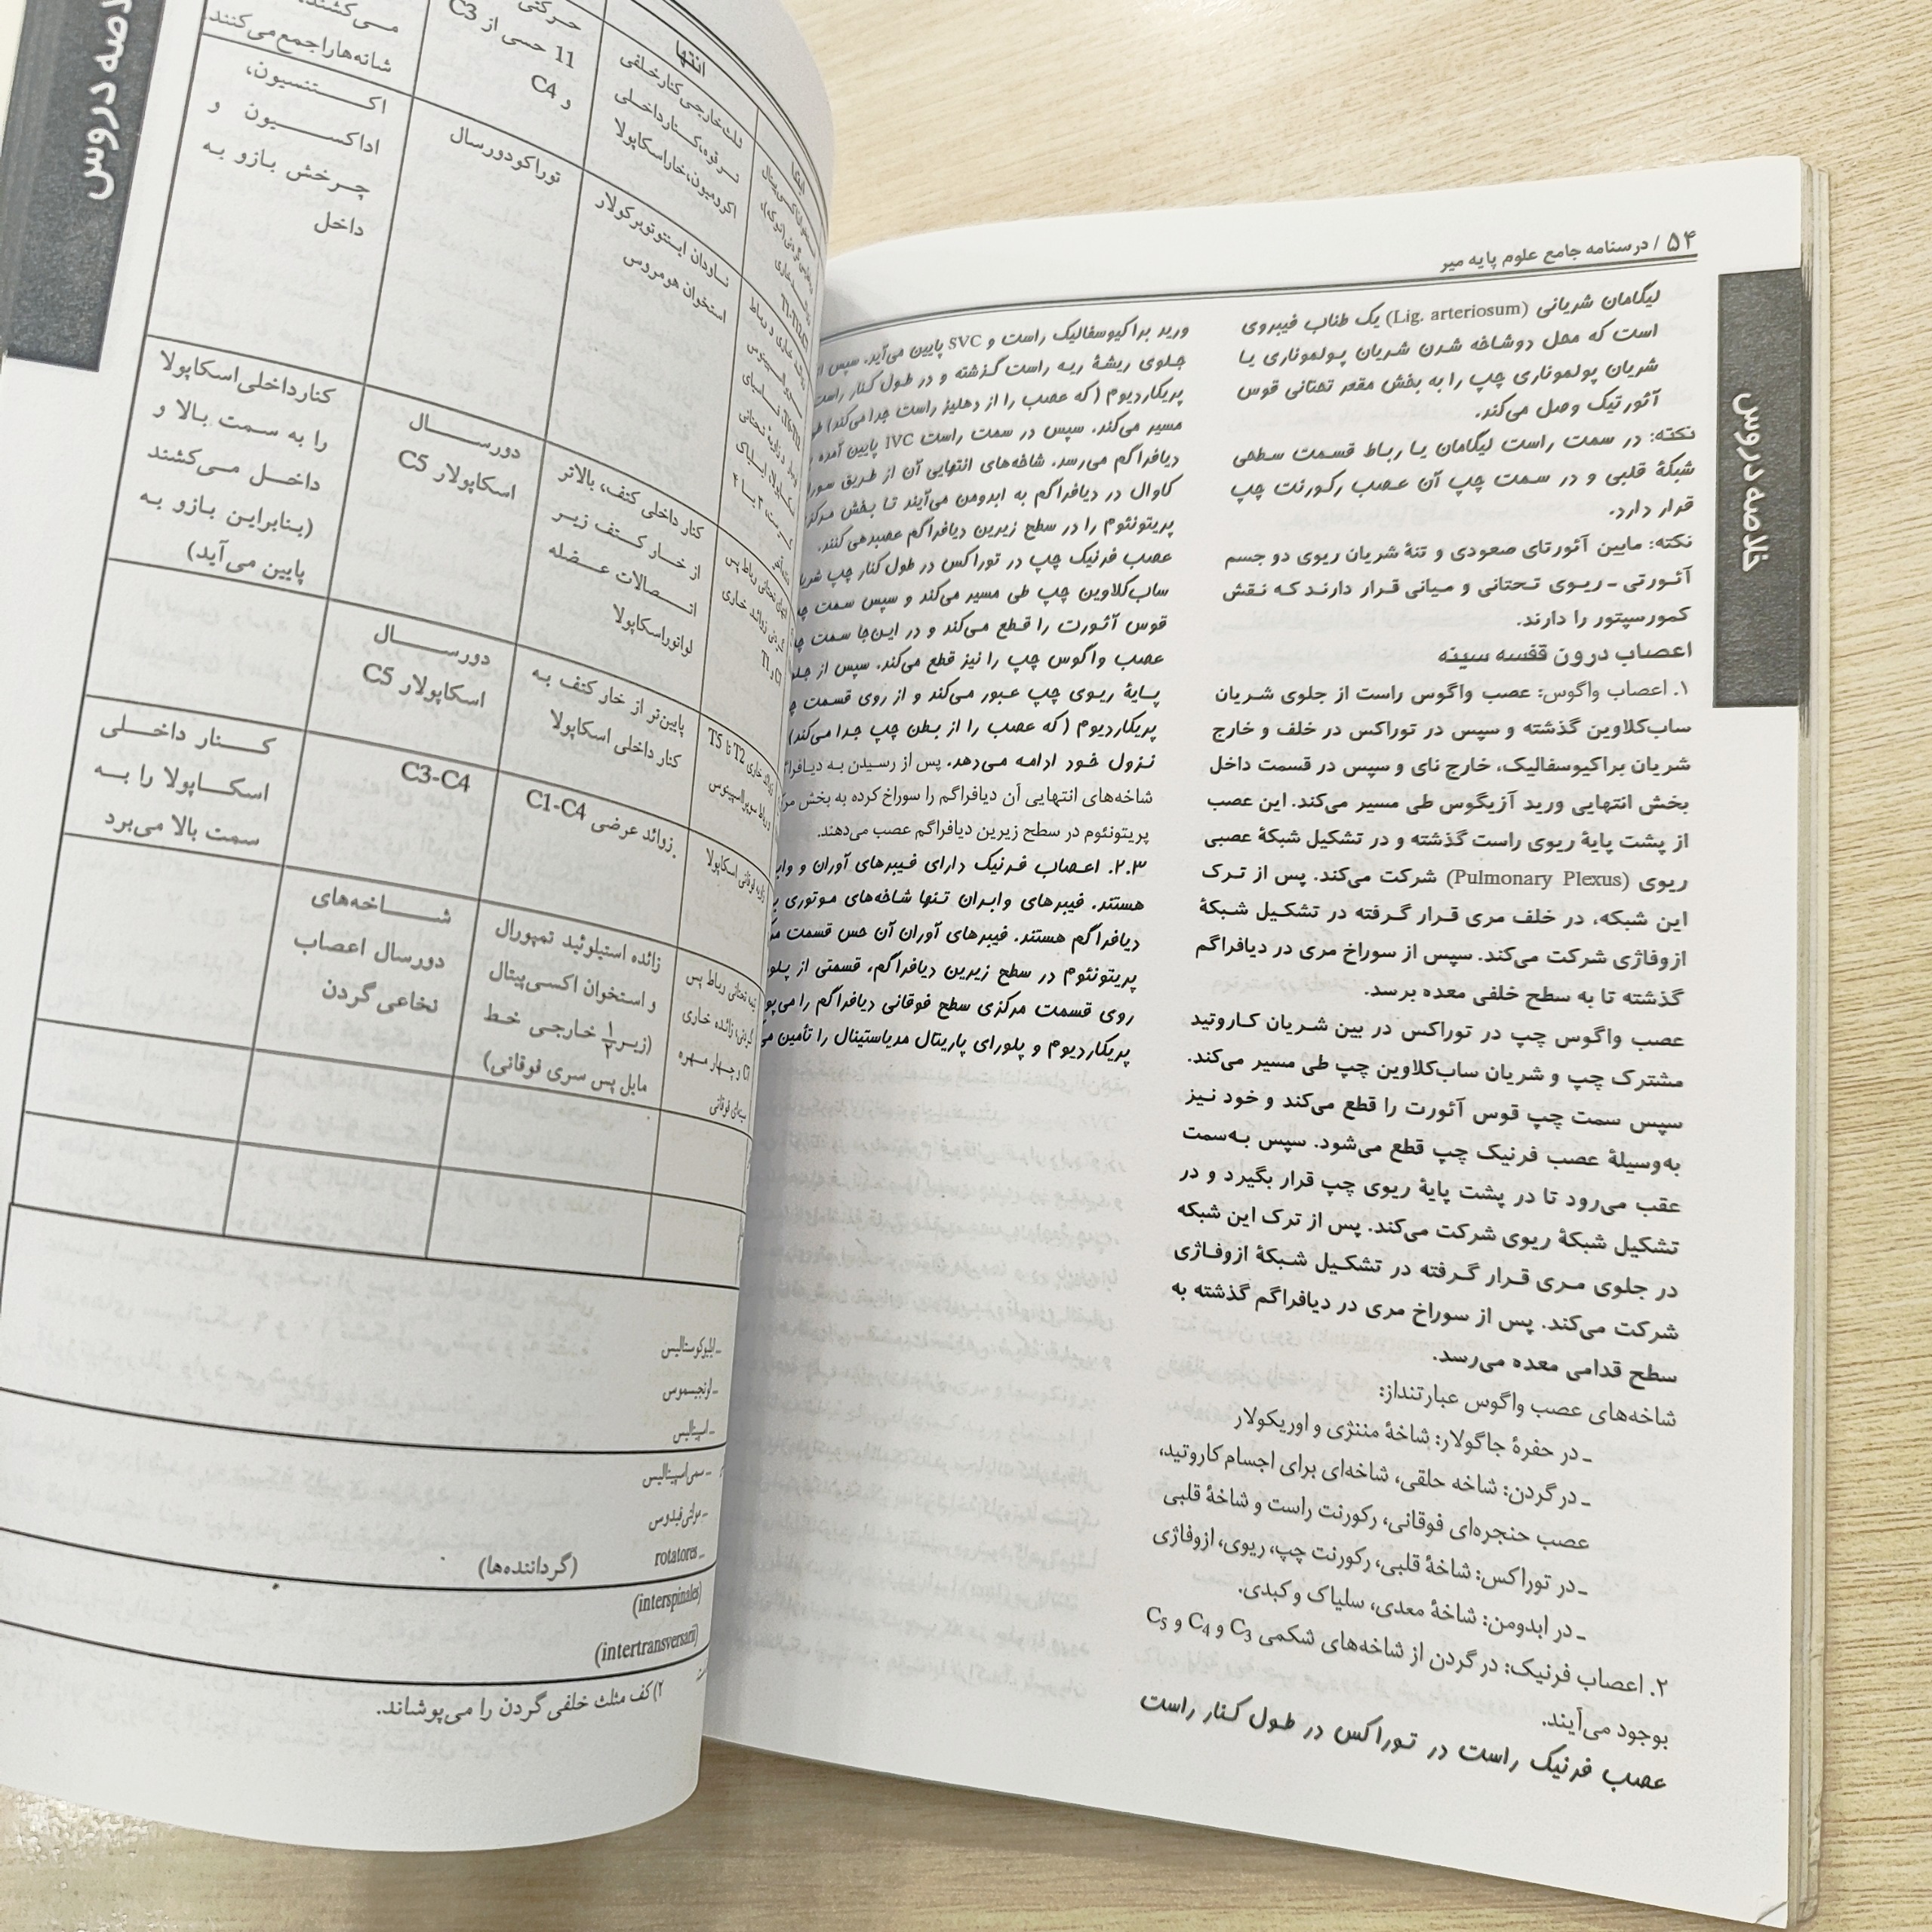 ۵۴ / درسنامه جامع علوم پایه میر
خلاصه دروس
لیگامان شریانی (Lig. arteriosum) یک طناب فیبروی
است که محل دوشاخه شدن شریان پولموناری یا
شریان پولموناری چپ را به بخش مقعر تحتانی قوس
آئورتیک وصل می‌کند.
نکته: در سمت راست لیگامان یا رباط قسمت سطحی
شبکۀ قلبی و در سمت چپ آن عصب رکورنت چپ
قرار دارد.
نکته: مابین آئورتای صعودی و تنۀ شریان ریوی دو جسم
آئورتی ـ ریوی تحتانی و میانی قرار دارند که نقش
کمورسپتور را دارند.
اعصاب درون قفسه سینه
۱. اعصاب واگوس: عصب واگوس راست از جلوی شریان
ساب‌کلاوین گذشته و سپس در توراکس در خلف و خارج
شریان براکیوسفالیک، خارج نای و سپس در قسمت داخل
بخش انتهایی ورید آزیگوس طی مسیر می‌کند. این عصب
از پشت پایۀ ریوی راست گذشته و در تشکیل شبکۀ عصبی
ریوی (Pulmonary Plexus) شرکت می‌کند. پس از ترک
این شبکه، در خلف مری قرار گرفته در تشکیل شبکۀ
ازوفاژی شرکت می‌کند. سپس از سوراخ مری در دیافراگم
گذشته تا به سطح خلفی معده برسد.
عصب واگوس چپ در توراکس در بین شریان کاروتید
مشترک چپ و شریان ساب‌کلاوین چپ طی مسیر می‌کند.
سپس سمت چپ قوس آئورت را قطع می‌کند و خود نیز
به‌وسیلۀ عصب فرنیک چپ قطع می‌شود. سپس به‌سمت
عقب می‌رود تا در پشت پایۀ ریوی چپ قرار بگیرد و در
تشکیل شبکۀ ریوی شرکت می‌کند. پس از ترک این شبکه
در جلوی مری قرار گرفته در تشکیل شبکۀ ازوفاژی
شرکت می‌کند. پس از سوراخ مری در دیافراگم گذشته به
سطح قدامی معده می‌رسد.
شاخه‌های عصب واگوس عبارتنداز:
ـ در حفرۀ جاگولار: شاخۀ مننژی و اوریکولار
ـ در گردن: شاخه حلقی، شاخه‌ای برای اجسام کاروتید،
عصب حنجره‌ای فوقانی، رکورنت راست و شاخۀ قلبی
ـ در توراکس: شاخۀ قلبی، رکورنت چپ، ریوی، ازوفاژی
ـ در ابدومن: شاخۀ معدی، سلیاک و کبدی.
۲. اعصاب فرنیک: در گردن از شاخه‌های شکمی C3 و C4 و C5
بوجود می‌آیند.
عصب فرنیک راست در توراکس در طول کنار راست
ورید براکیوسفالیک راست و SVC پایین می‌آید. سپس از
جلوی ریشۀ ریه راست گذشته و در طول کنار راست
پریکاردیوم (که عصب را از دهلیز راست جدا می‌کند)
مسیر می‌کند. سپس در سمت راست IVC پایین آمده
دیافراگم می‌رسد. شاخه‌های انتهایی آن از طریق
کاوال در دیافراگم به ابدومن می‌آیند تا بخش
پریتونئوم را در سطح زیرین دیافراگم عصبدهی کنند.
عصب فرنیک چپ در توراکس در طول کنار چپ
ساب‌کلاوین چپ طی مسیر می‌کند و سپس سمت
قوس آئورت را قطع می‌کند و در این‌جا سمت
عصب واگوس چپ را نیز قطع می‌کند. سپس از
پایۀ ریوی چپ عبور می‌کند و از روی قسمت
پریکاردیوم (که عصب را از بطن چپ جدا می‌کند)
نزول خود ادامه می‌دهد. پس از رسیدن به
شاخه‌های انتهایی آن دیافراگم را سوراخ کرده به بخش
پریتونئوم در سطح زیرین دیافراگم عصب می‌دهند.
۲.۳. اعصاب فرنیک دارای فیبرهای آوران و
هستند. فیبرهای وابران تنها شاخه‌های موتوری
دیافراگم هستند. فیبرهای آوران آن حس قسمت
پریتونئوم در سطح زیرین دیافراگم، قسمتی از
روی قسمت مرکزی سطح فوقانی دیافراگم را
پریکاردیوم و پلورای پاریتال مدیاستینال را تأمین
دروس
انتها
ابتدا
ثلث خارجی کنار خلفی
ترقوه، کنار داخلی
اکرومیون، خار اسکاپولا
حرکتی
11 حسی از C3
و C4
می‌کشند،
شانه‌ها را جمع می‌کنند.
ناودان اینترتوبرکولار
استخوان هومروس
توراکودورسال
اکستنسیون،
اداکسیون و
چرخش بازو به
داخل
کنار داخلی کتف، بالاتر
از خار کتف زیر
اتصالات عضله
لواتور اسکاپولا
دورسال
اسکاپولار C5
کنار داخلی اسکاپولا
را به سمت بالا و
داخل می‌کشند
(بنابراین بازو به
پایین می‌آید)
T2 تا T5
پایین‌تر از خار کتف به
کنار داخلی اسکاپولا
دورسال
اسکاپولار C5
زاویه فوقانی اسکاپولا
زوائد عرضی C1-C4
C3-C4
کنار داخلی
اسکاپولا را به
سمت بالا می‌برد
نیمه تحتانی رباط پس
گردنی، زائده خاری
C7 و چهار مهره
سینه‌ای فوقانی
زائده استیلوئید تمپورال
و استخوان اکسی‌پیتال
(زیر ۱/۲ خارجی خط
مابل پس سری فوقانی)
شاخه‌های
دورسال اعصاب
نخاعی گردن
ـ ایلیوکوستالیس
ـ لونجیسموس
ـ اسپینالیس
ـ سمی‌اسپینالیس
ـ مولتی‌فیدوس
ـ rotatores (گرداننده‌ها)
(interspinales)
(intertransversarii)
۲) کف مثلث خلفی گردن را می‌پوشاند.